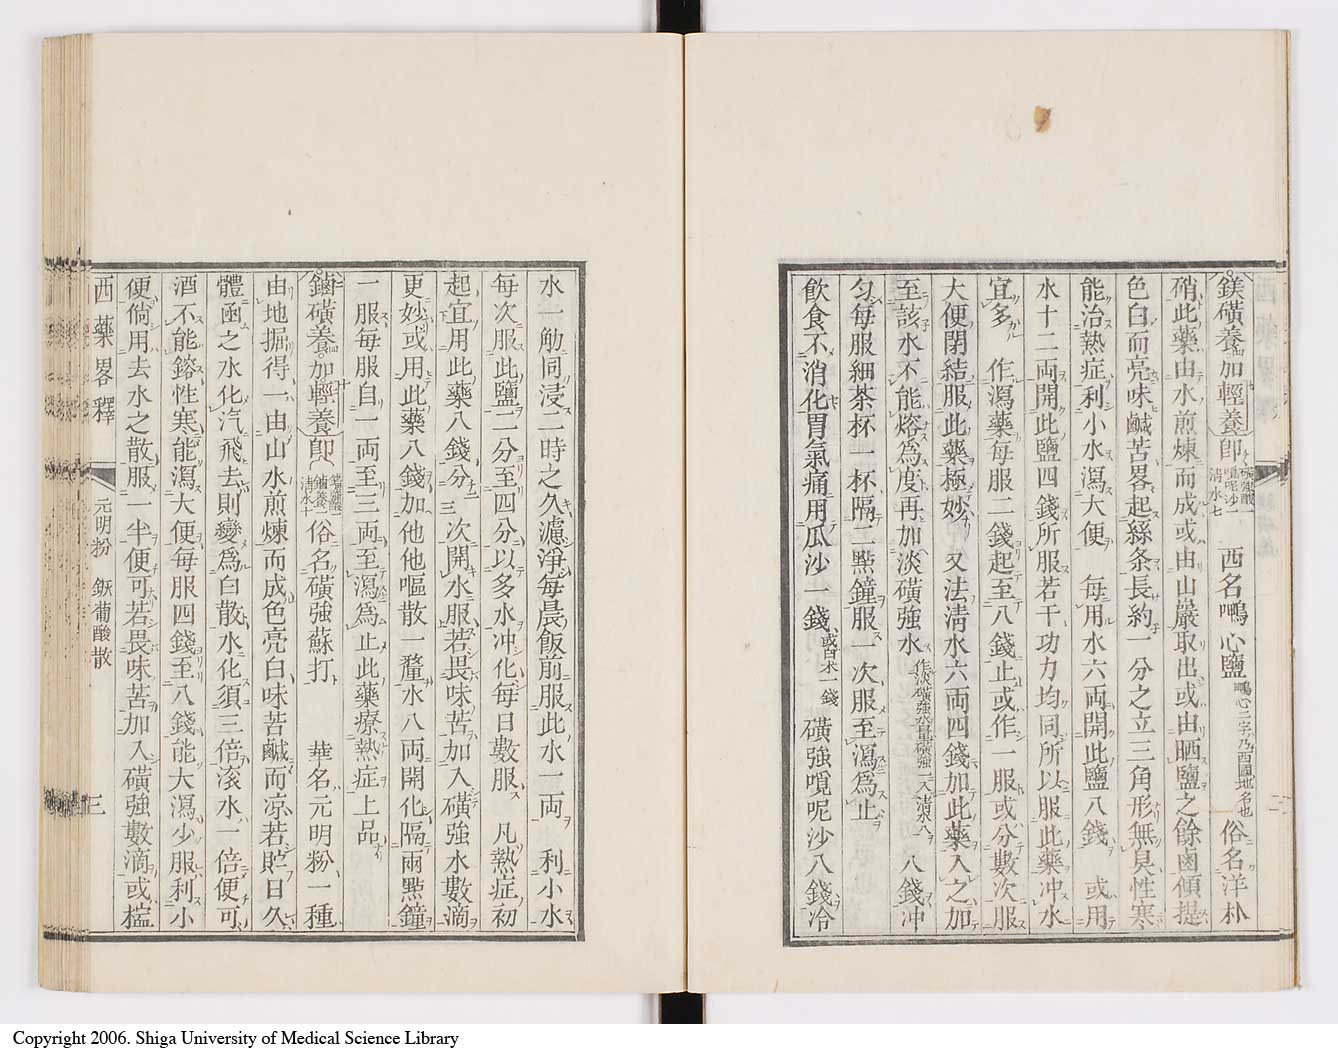 鎂磺養四加輕養即磺強酸一嘪呢沙一清水七 西名鴫心鹽鴫心二字乃西國地名也 俗名洋朴
硝此藥由水煎煉而成或由山巖取出或由晒鹽之餘鹵傾提
色白而亮味鹹苦畧起絲条長約一分之立三角形無臭性寒
能治熱症利小水瀉大便 每用水六両開此鹽八錢 或用
水十二両開此鹽四錢所服若干功力均同所以服此藥冲水
宜多 作瀉藥每服二錢起至八錢止或作一服或分數次服
大便閉結服此藥極妙 又法清水六両四錢加此藥入之加
至該水不能熔為度再加淡磺強水 八錢冲
匀每服細茶杯一杯隔二㸃鐘服一次服至瀉為止
飲食不消化胃氣痛用瓜沙一錢或白术一錢 磺強嘪呢沙八錢冷
水一觔同浸二時之久濾淨每晨飯前服此水一両 利小水
每次服此鹽二分至四分以多水冲化每日數服 凡熱症初
起宜用此藥八錢分三次開水服若畏味苦加入磺強水數滴
更妙或用此藥八錢加他他嘔散一釐水八両開化隔兩㸃鐘
一服每服自一両至三両至瀉為止此藥療熱症上品
鏀磺養四加輕養即 清水十 俗名磺強蘇打 華名元明粉一種
由地掘得一由山水煎煉而成色亮白味苦鹹而凉若貯日久
體函之水化汽飛去則變為白散水化須三倍滚水一倍便可
酒不能鎔性寒能瀉大便每服四錢至八錢能大瀉少服利小
便倘用去水之散服一半便可若畏味苦加入磺強數滴或橀
西藥畧釋 元明粉 鉃葡酸散 三